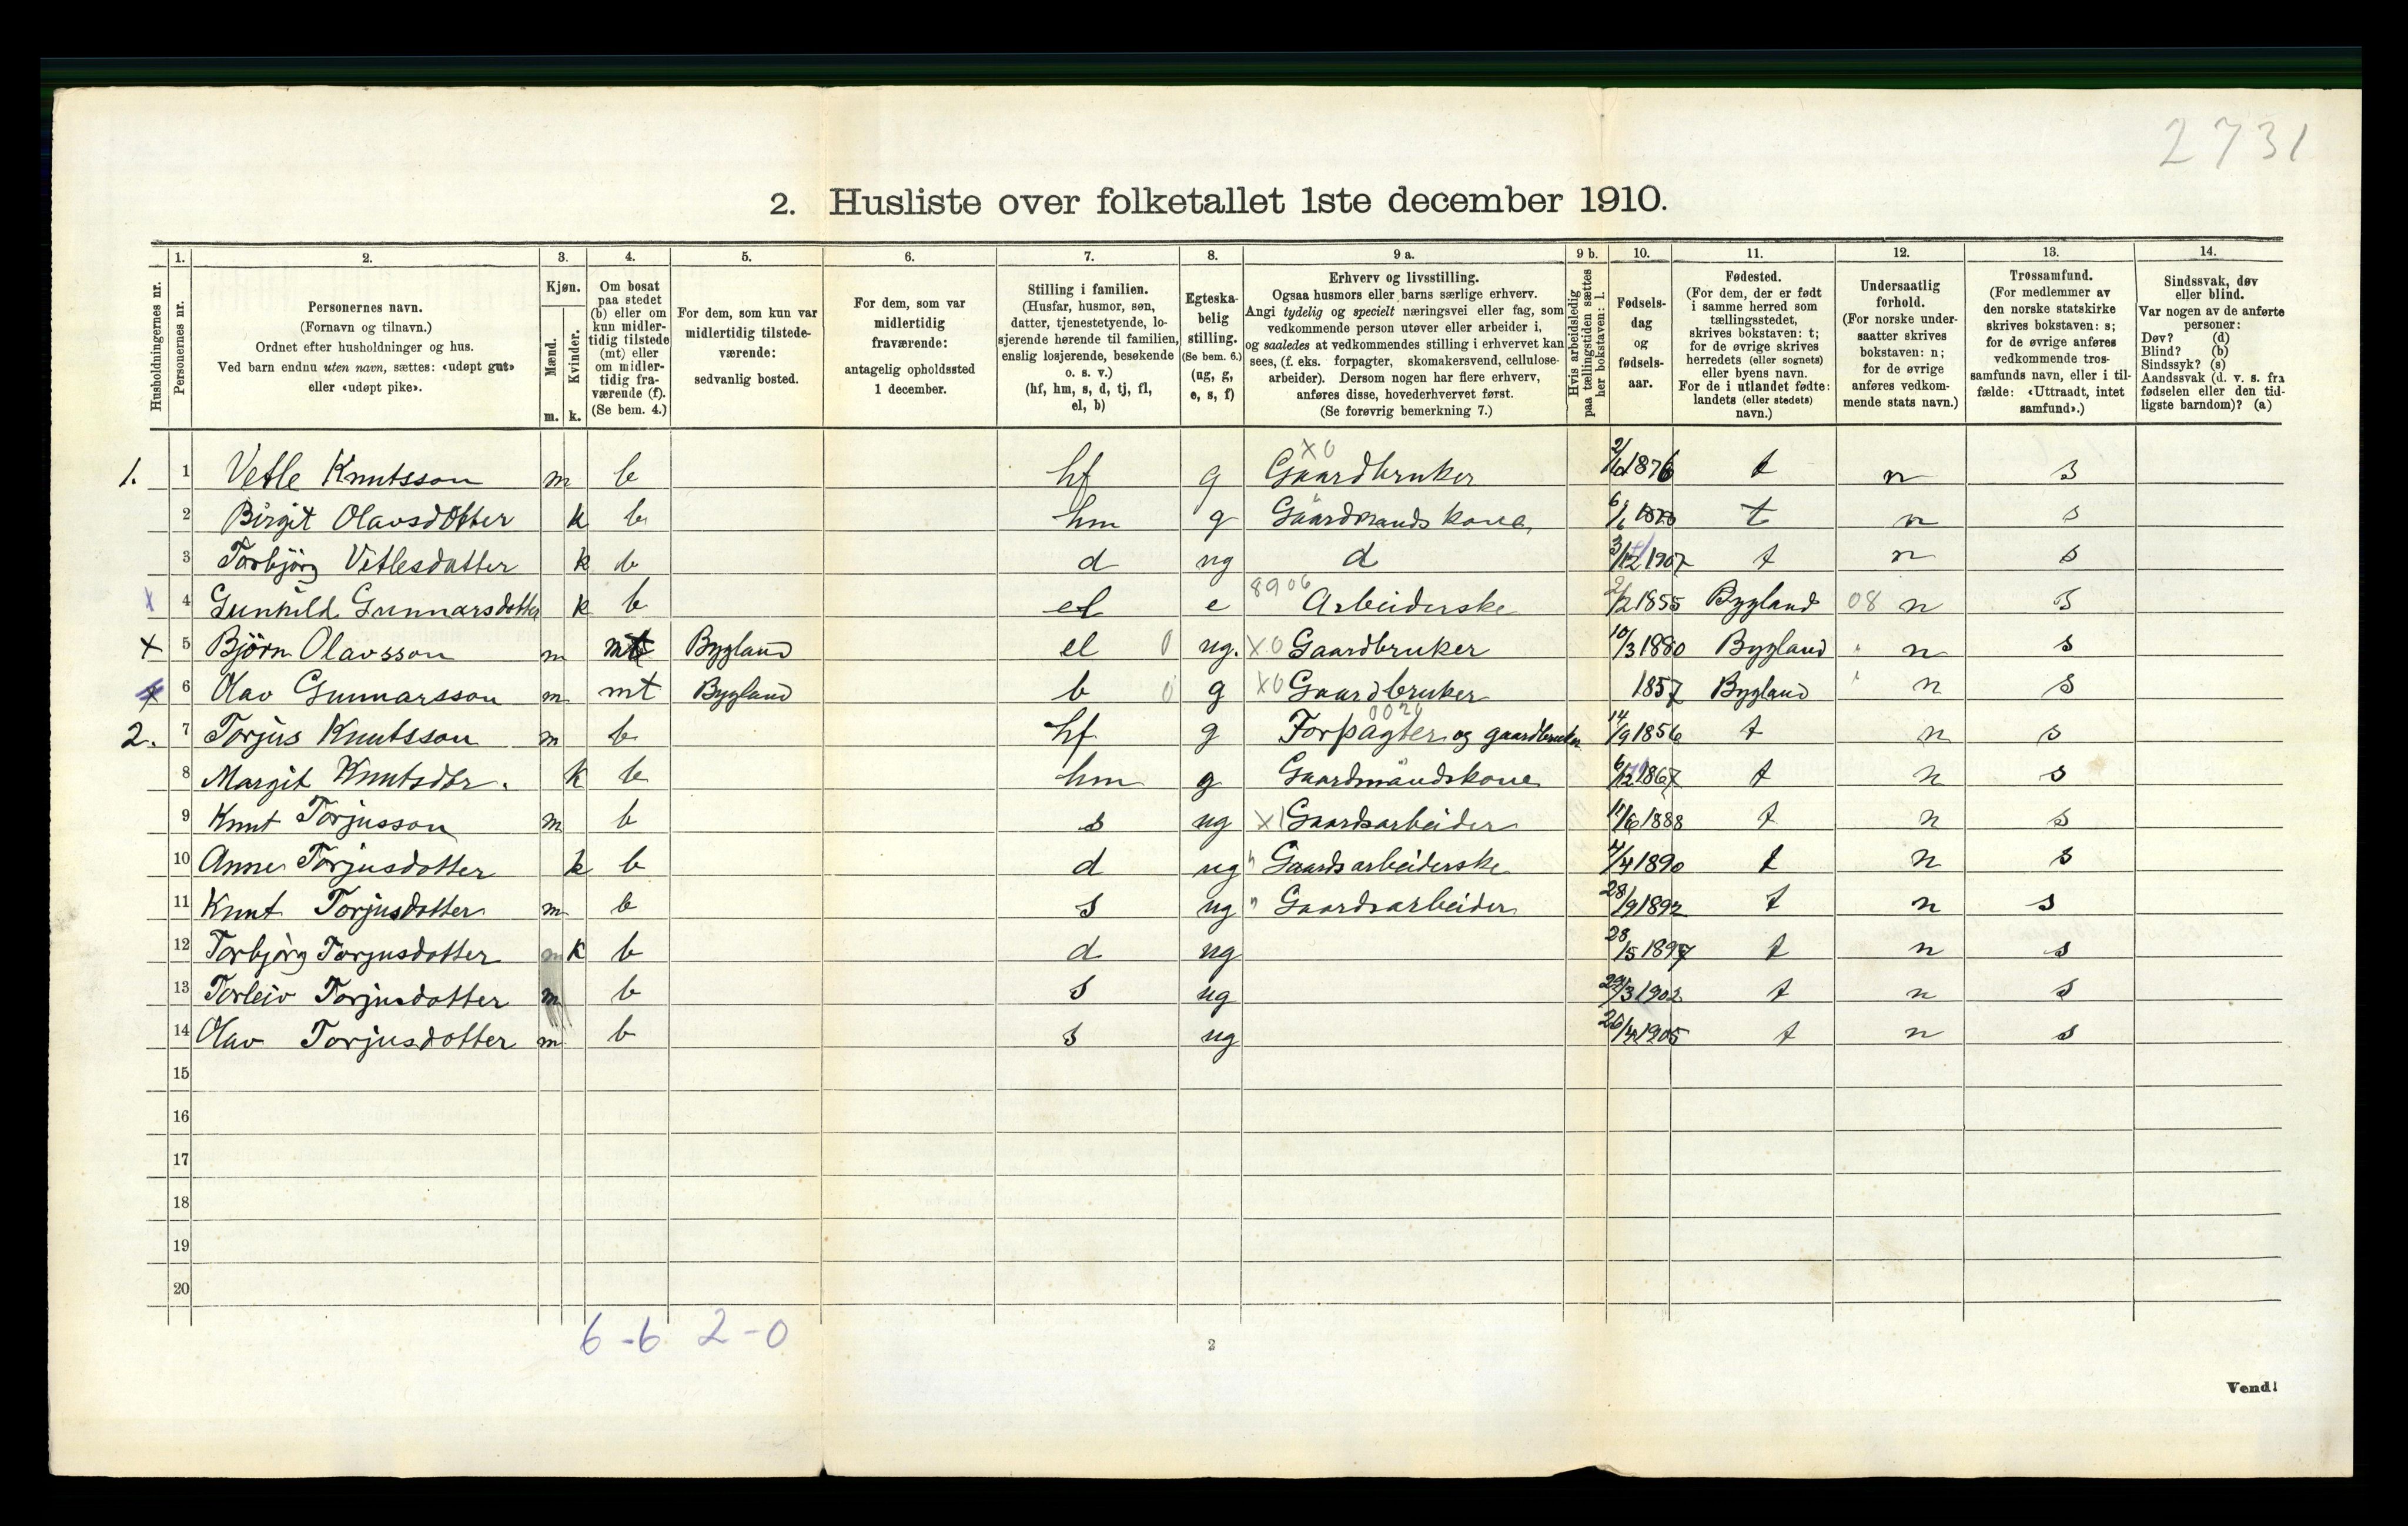 2731
2. Husliste over folketallet 1ste december 1910.
Husholdningernes nr.
1. Personernes nr.
2. Personernes navn. (Fornavn og tilnavn.) Ordnet efter husholdninger og hus. Ved barn endnu uten navn, sættes: «udøpt gut» eller «udøpt pike».
3. Kjøn. Mænd. m. Kvinder. k.
4. Om bosat paa stedet (b) eller om kun midlertidig tilstede (mt) eller om midlertidig fraværende (f). (Se bem. 4.)
5. For dem, som kun var midlertidig tilstedeværende: sedvanlig bosted.
6. For dem, som var midlertidig fraværende: antagelig opholdssted 1 december.
7. Stilling i familien. (Husfar, husmor, søn, datter, tjenestetyende, losjerende hørende til familien, enslig losjerende, besøkende o. s. v.) (hf, hm, s, d, tj, fl, el, b)
8. Egteskabelig stilling. (Se bem. 6.) (ug, g, e, s, f)
9 a. Erhverv og livsstilling. Ogsaa husmors eller barns særlige erhverv. Angi tydelig og specielt næringsvei eller fag, som vedkommende person utøver eller arbeider i, og saaledes at vedkommendes stilling i erhvervet kan sees, (f. eks. forpagter, skomakersvend, cellulosearbeider). Dersom nogen har flere erhverv, anføres disse, hovederhvervet først. (Se forøvrig bemerkning 7.)
9 b. Hvis arbeidsledig paa tællingstiden sættes her bokstaven: l.
10. Fødselsdag og fødselsaar.
11. Fødested. (For dem, der er født i samme herred som tællingsstedet, skrives bokstaven: t; for de øvrige skrives herredets (eller sognets) eller byens navn. For de i utlandet fødte: landets (eller stedets) navn.)
12. Undersaatlig forhold. (For norske undersaatter skrives bokstaven: n; for de øvrige anføres vedkommende stats navn.)
13. Trossamfund. (For medlemmer av den norske statskirke skrives bokstaven: s; for de øvrige anføres vedkommende trossamfunds navn, eller i tilfælde: «Uttraadt, intet samfund».)
14. Sindssvak, døv eller blind. Var nogen av de anførte personer: Døv? (d) Blind? (b) Sindssyk? (s) Aandssvak (d. v. s. fra fødselen eller den tidligste barndom)? (a)
1. 1 Vetle Knutsson m b hf g X0 Gaardbruker 1876 t n s
2 Birgit Olavsdotter k b hm g Gaardmandskone 6/6 t n s
3 Torbjörg Vetlesdatter k b d ug d 3/12 1907 t n s
X 4 Gunhild Gunnarsdotter k b el e 8906 Arbeiderske 2/2 1855 Bygland 08 n s
X 5 Björn Olavsson m mt Bygland el 0 ug. X0 Gaardbruker 10/3 1880 Bygland " n s
X 6 Olav Gunnarsson m mt Bygland b 0 g X0 Gaardbruker 1857 Bygland " n s
2. 7 Torjus Knutsson m b hf g Forpagter og gaardbruker 14/9 1856 t n s
8 Margit Knutsdtr. k b hm g Gaardmandskone 6/12 1867 t n s
9 Knut Torjusson m b s ug X1 Gaardsarbeider 11/6 1888 t n s
10 Anne Torjusdotter k b d ug " Gaardsarbeiderske 7/4 1890 t n s
11 Knut Torjusdotter m b s ug " Gaardsarbeider 28/9 1892 t n s
12 Torbjörg Torjusdotter m k b d ug 28/5 1897 t n s
13 Torleiv Torjusdotter m b s ug 29/3 1902 t n s
14 Olav Torjusdotter m b s ug 26/4 1905 t n s
15
16
17
18
19
20
6-6 2-0
2
Vend!